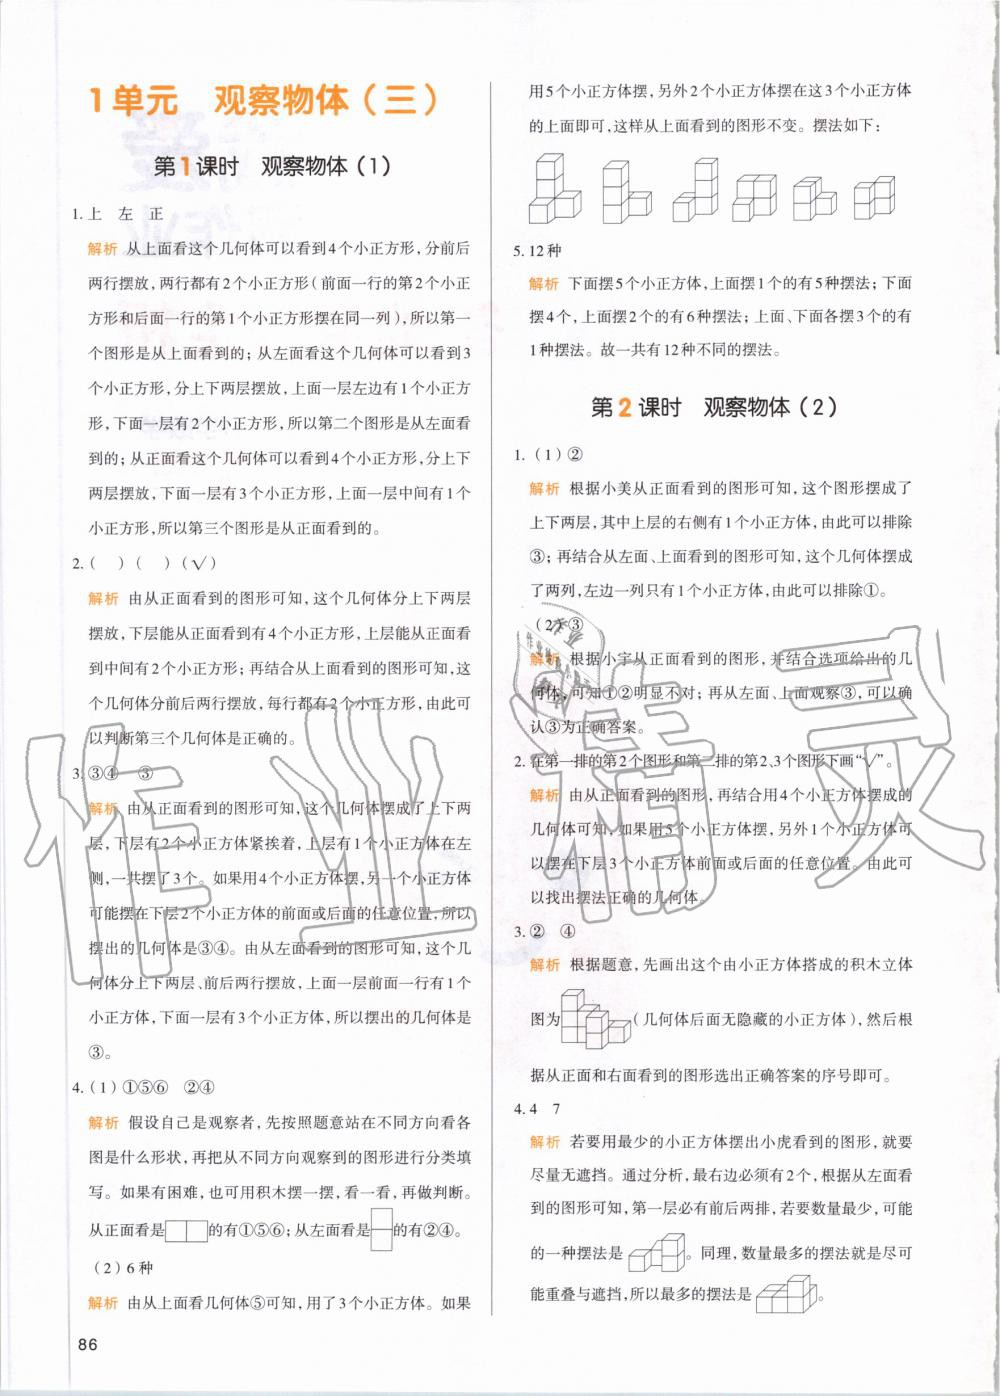 1单元 观察物体（三）
第1课时 观察物体（1）
1. 上 左 正
解析 从上面看这个几何体可以看到4个小正方形，分前后
两行摆放，两行都有2个小正方形（前面一行的第2个小正
方形和后面一行的第1个小正方形摆在同一列），所以第一
个图形是从上面看到的；从左面看这个几何体可以看到3
个小正方形，分上下两层摆放，上面一层左边有1个小正方
形，下面一层有2个小正方形，所以第二个图形是从左面看
到的；从正面看这个几何体可以看到4个小正方形，分上下
两层摆放，下面一层有3个小正方形，上面一层中间有1个
小正方形，所以第三个图形是从正面看到的。
2.（ ）（ ）（√）
解析 由从正面看到的图形可知，这个几何体分上下两层
摆放，下层能从正面看到3个小正方形，上层能从正面看
到中间有2个小正方形；再结合从上面看到的图形可知，这
个几何体分前后两行摆放，每行都有2个小正方形，由此可
以判断第三个几何体是正确的。
3. ③④ ③
解析 由从正面看到的图形可知，这个几何体摆成了上下两
层，下层有2个小正方体紧挨着，上层有1个小正方体在左
侧，一共摆了3个。如果用4个小正方体摆，另一个小正方体
可能摆在下层2个小正方体的前面或后面的任意位置，所以
摆出的几何体是③④。由从左面看到的图形可知，这个几
何体分上下两层、前后两行摆放，上面一层前面一行有1个
小正方体，下面一层有3个小正方体，所以摆出的几何体是
③。
4.（1）①⑤⑥ ②④
解析 假设自己是观察者，先按照题意站在不同方向看各
图是什么形状，再把从不同方向观察到的图形进行分类填
写。如果有困难，也可用积木摆一摆，看一看，再做判断。
从正面看是的有①⑤⑥；从左面看是的有②④。
（2）6种
解析 由从上面看几何体⑤可知，用了3个小正方体。如果
86
用5个小正方体摆，另外2个小正方体摆在这3个小正方体
的上面即可，这样从上面看到的图形不变。摆法如下：
5. 12种
解析 下面摆5个小正方体，上面摆1个的有5种摆法；下面
摆4个，上面摆2个的有6种摆法；上面、下面各摆3个的有
1种摆法。故一共有12种不同的摆法。
第2课时 观察物体（2）
1.（1）②
解析 根据小美从正面看到的图形可知，这个图形摆成了
上下两层，其中上层的右侧有1个小正方体，由此可以排除
③；再结合从左面、上面看到的图形可知，这个几何体摆成
了两列，左边一列只有1个小正方体，由此可以排除①。
（2）③
解析 根据小宇从正面看到的图形，并结合选项给出的几
何体，可知①②明显不对；再从左面、上面观察③，可以确
认③为正确答案。
2. 在第一排的第2个图形和第二排的第2、3个图形下画“√”。
解析 由从正面看到的图形，再结合用4个小正方体摆成的
几何体可知，如果用5个小正方体摆，另外1个小正方体可
以摆在下层3个小正方体前面或后面的任意位置。由此可
以找出摆法正确的几何体。
3. ② ④
解析 根据题意，先画出这个由小正方体搭成的积木立体
图为（几何体后面无隐藏的小正方体），然后根
据从正面和右面看到的图形选出正确答案的序号即可。
4. 4 7
解析 若要用最少的小正方体摆出小虎看到的图形，就要
尽量无遮挡。通过分析，最右边必须有2个，根据从左面看
到的图形可知，第一层必有前后两排，若要数量最少，可能
的一种摆法是。同理，数量最多的摆法就是尽可
能重叠与遮挡，所以最多的摆法是。
作业精灵